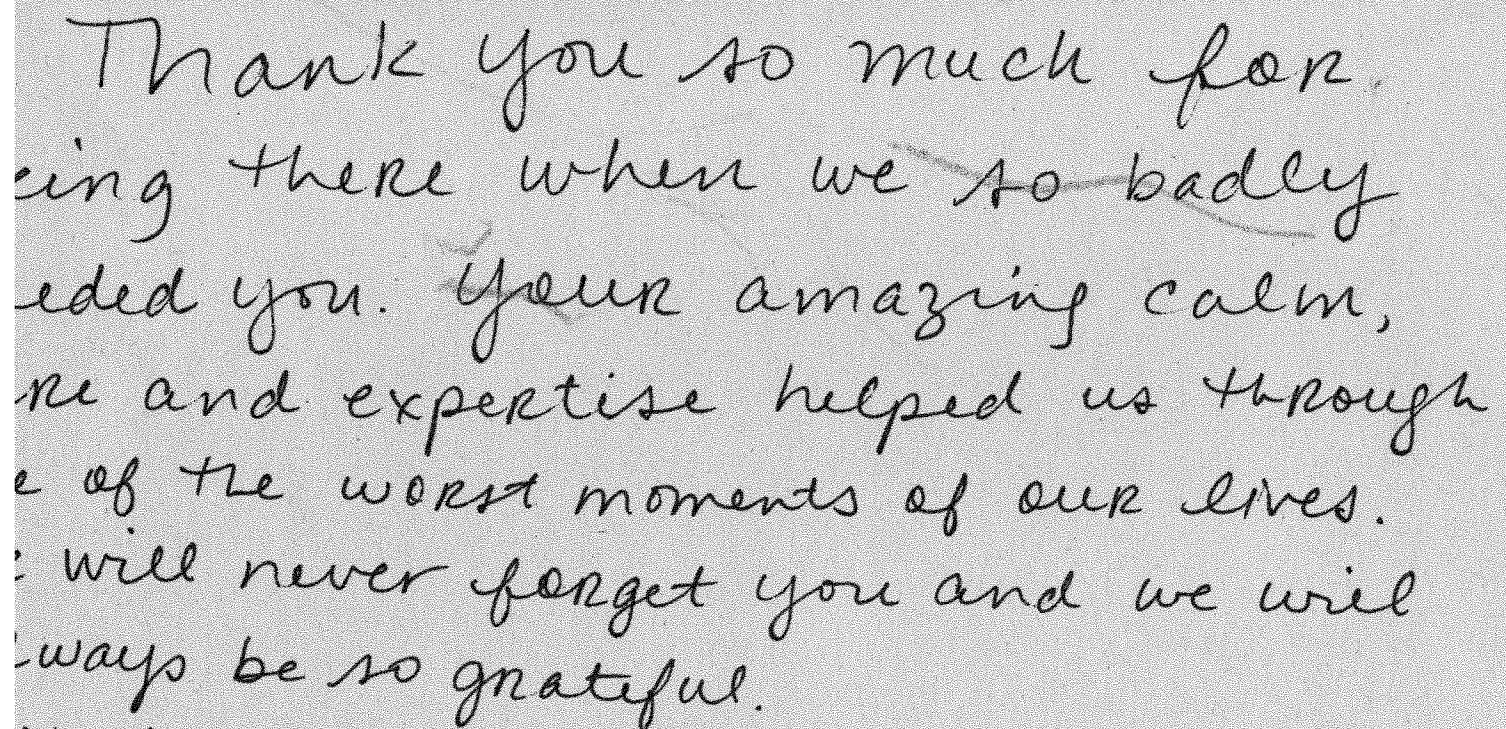 Thank you so much for
eing there when we so badly
eded you. Your amazing calm,
re and expertise helped us through
e of the worst moments of our lives.
e will never forget you and we will
ways be so grateful.